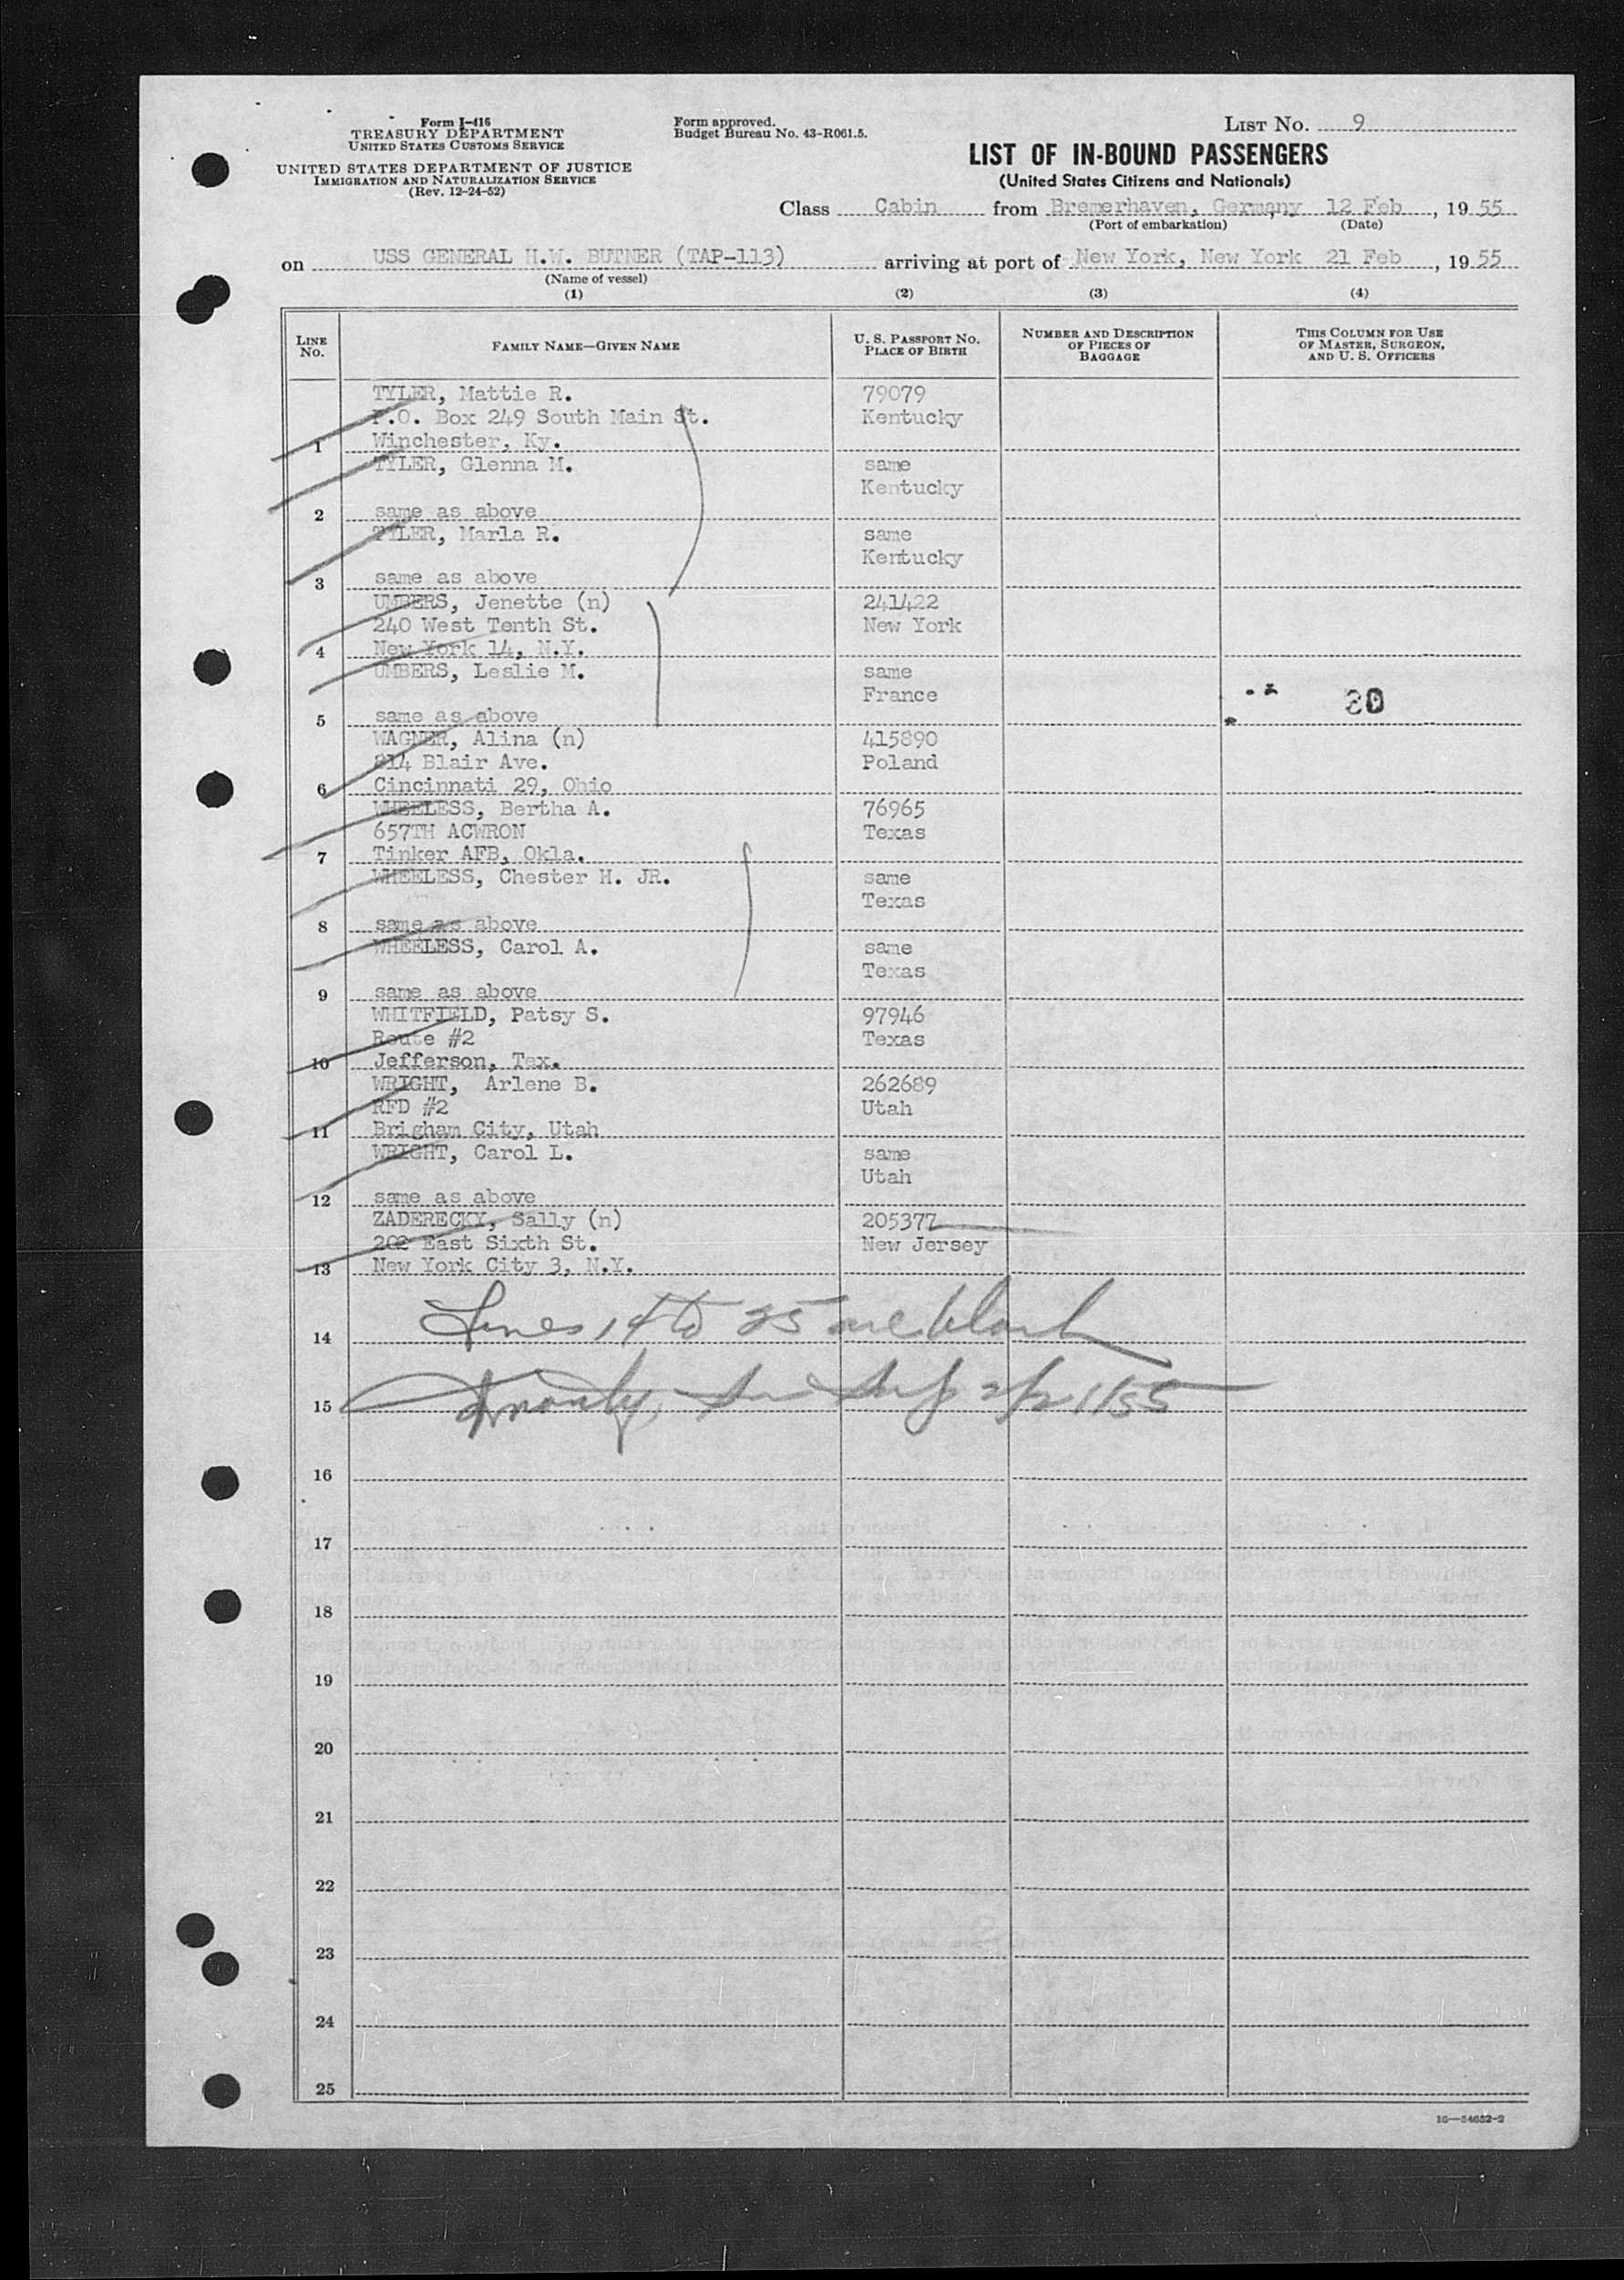 Form I-416
TREASURY DEPARTMENT
UNITED STATES CUSTOMS SERVICE
UNITED STATES DEPARTMENT OF JUSTICE
IMMIGRATION AND NATURALIZATION SERVICE
(Rev. 12-24-52)
Form approved.
Budget Bureau No. 43-R061.5.
LIST NO. 9
LIST OF IN-BOUND PASSENGERS
(United States Citizens and Nationals)
Class Cabin from Bremerhaven, Germany 12 Feb, 19 55
(Port of embarkation) (Date)
on USS GENERAL H.W. BUTNER (TAP-113) arriving at port of New York, New York 21 Feb, 19 55
(Name of vessel)
(1) (2) (3) (4)
LINE NO. FAMILY NAME—GIVEN NAME U. S. PASSPORT NO. PLACE OF BIRTH NUMBER AND DESCRIPTION OF PIECES OF BAGGAGE THIS COLUMN FOR USE OF MASTER, SURGEON, AND U. S. OFFICERS
TYLER, Mattie R. 79079
P.O. Box 249 South Main St. Kentucky
1 Winchester, Ky.
TYLER, Glenna M. same
Kentucky
2 same as above
TYLER, Marla R. same
Kentucky
3 same as above
UMBERS, Jenette (n) 241422
240 West Tenth St. New York
4 New York 14, N.Y.
UMBERS, Leslie M. same
France 30
5 same as above
WAGNER, Alina (n) 415890
814 Blair Ave. Poland
6 Cincinnati 29, Ohio
WHEELESS, Bertha A. 76965
657TH ACWRON Texas
7 Tinker AFB, Okla.
WHEELESS, Chester H. JR. same
Texas
8 same as above
WHEELESS, Carol A. same
Texas
9 same as above
WHITFIELD, Patsy S. 97946
Route #2 Texas
10 Jefferson, Tex.
WRIGHT, Arlene B. 262689
RFD #2 Utah
11 Brigham City, Utah
WRIGHT, Carol L. same
Utah
12 same as above
ZADERECKY, Sally (n) 205377
202 East Sixth St. New Jersey
13 New York City 3, N.Y.
14 Lines 14 to 25 are blank
15 2/21/55
16
17
18
19
20
21
22
23
24
25
16—54632-2